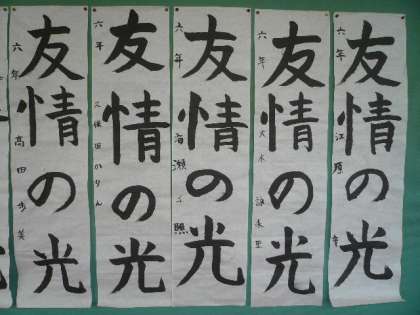 友情の光
六年 江原
友情の光
六年 大木 詠未里
友情の光
六年 海瀬 千照
友情の光
六年 久保田かりん
友情の光
六年 高田歩美